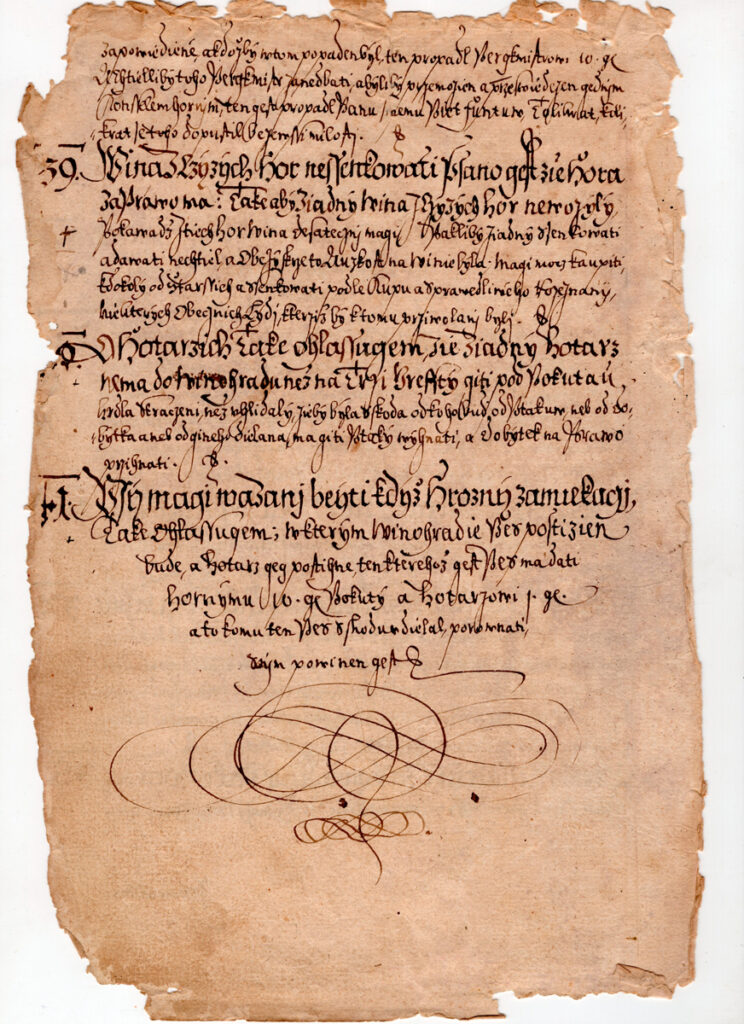 zapowiediene, a kdožby w tom popaden byl, ten propadl Pergkmistrowi 10. ge
Nechtielliby toho Pergkmistr zanedbati, a byliby przemožen a przeswiedczen gednym
Konsselem hornym, ten gest propadl Panu swemu Piet funtuw, Tolikrat, koli-
krat se toho dopustil beze wssi milosti.
39. Wina z Czyzych Hor nessenkowati Psano gest zie Hora
za Prawo ma: Take aby ziadny wina z Czyzych hor newozyly,
Pokawadž z tiech Hor Wina desateczni magi, Pakliby ziadny ssenkowati
a dawati nechtiel, a Obecz skrze to Auzkost na Winie byla. magi mocz kaupiti
kdokoly od Starssich a ssenkowati podle Kupu a sprawedliweho Rozeznany,
niekterych Obecznich Lydi, kterziž by k tomu prziwolani byli.
40. O Hotarzich Take ohlassugem, zie ziadny Hotarz
nema do Winohradu než na Trzi Krossky giti pod Pokutau
hrdla ztraczeni, než uhlidaly, ziieby byla sskoda od koho kud, od Ptakuw, neb od do-
bytka aneb od gineho dielana, ma giti Ptaky wyhnati, a dobytek na Prawo
przihnati.
41. Psy magi wazani beyti když Hrozny zamiekagi,
Take Ohlassugem; w kterym Winohradie Pes postizien
bude, a Hotarz geg postihne, ten kterehož gest Pes ma dati
Hornymu 10. ge Pokuty a Hotarzowi 1. ge.
a to komu ten Pes sskodu udielal, porownati,
s tym powinen gest